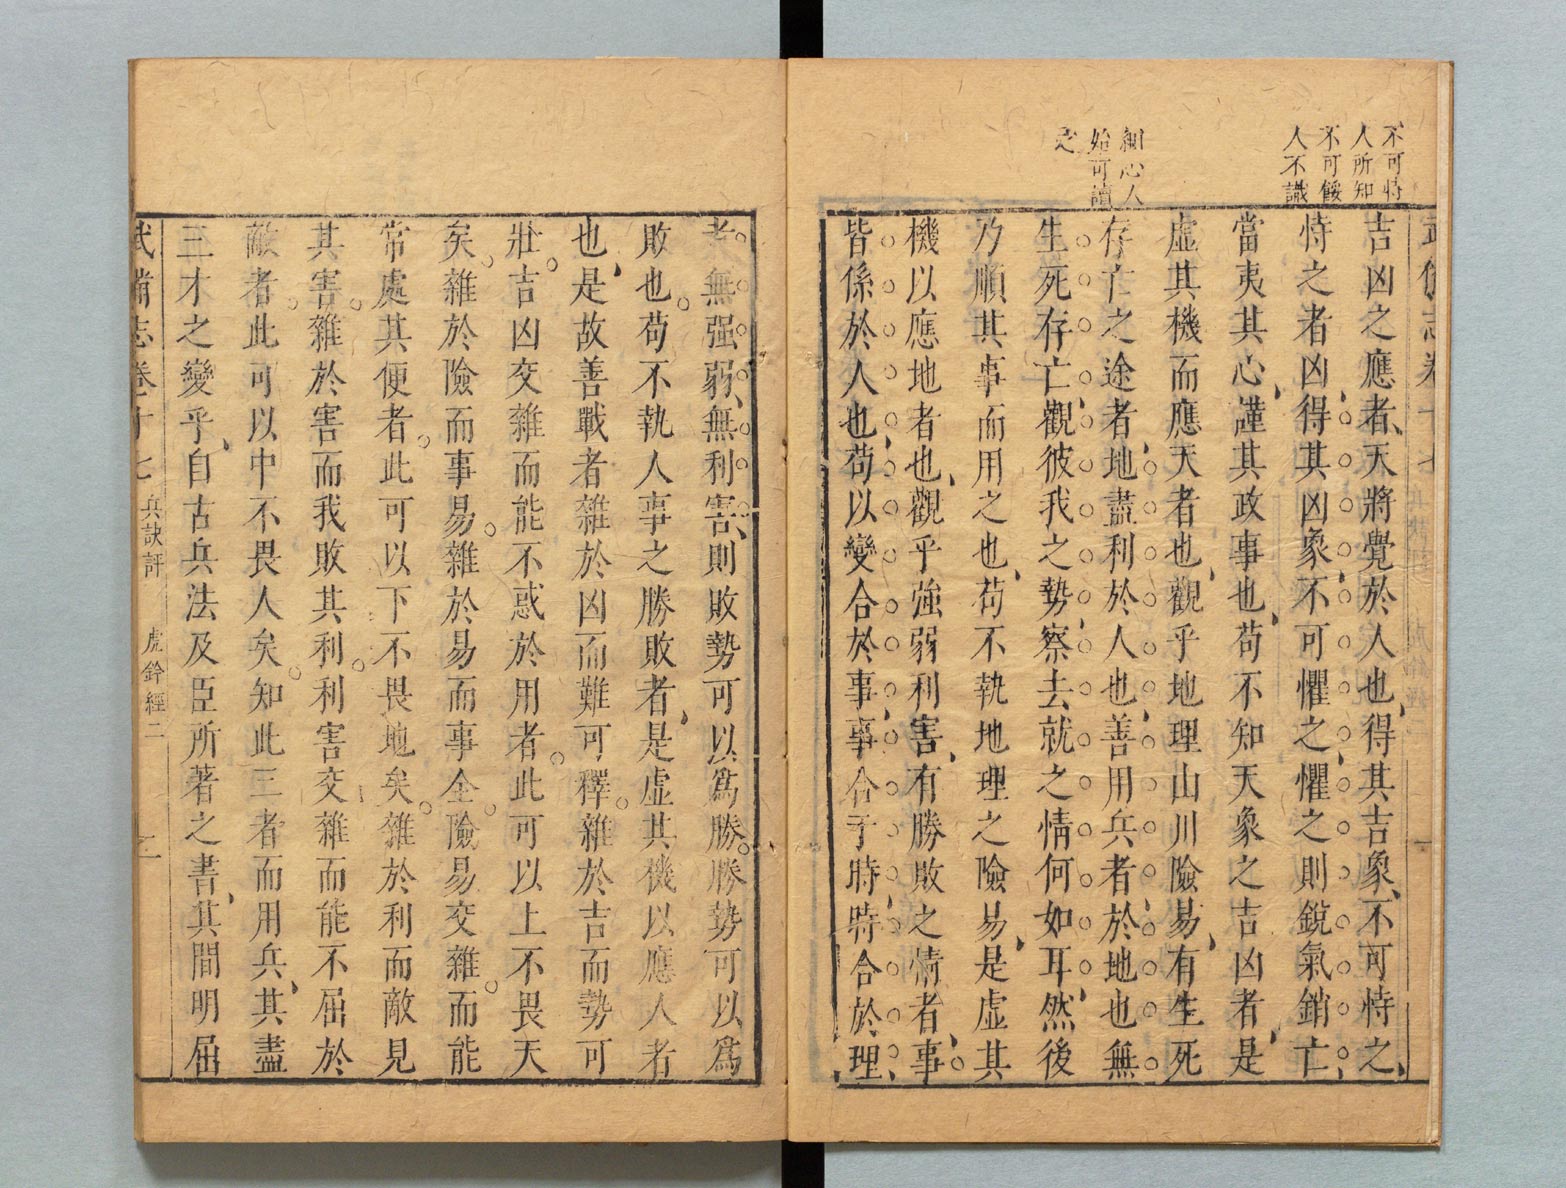 不可恃
人所知
不可餒
人不識
細心人
始可讀
之
吉凶之應者、天將覺於人也、得其吉象、不可恃之、
恃之者凶、得其凶象、不可懼之、懼之則銳氣銷亡、
當夷其心、謹其政事也、苟不知天象之吉凶者、是
虛其機而應天者也、觀乎地理山川險易、有生死
存亡之途者、地盡利於人也、善用兵者、於地也、無
生死存亡、觀彼我之勢、察去就之情何如耳、然後
乃順其事而用之也、苟不執地理之險易、是虛其
機以應地者也、觀乎強弱利害、有勝敗之情者、事
皆係於人也、苟以變合於事、事合于時、時合於理、
者。無强弱、無利害、則敗勢可以爲勝。勝勢可以爲
敗也。苟不執人事之勝敗者、是虛其機以應人者
也、是故善戰者雜於凶而難可釋。雜於吉而勢可
壯。吉凶交雜而能不惑於用者。此可以上不畏天
矣。雜於險而事易。雜於易而事全。險易交雜。而能
常處其便者。此可以下不畏地矣。雜於利而敵見
其害。雜於害而我敗其利。利害交雜而能不屈於
敵者。此可以中不畏人矣。知此三者而用兵、其盡
三才之變乎、自古兵法及臣所著之書、其間明屈
武備志卷十七 兵訣評 虎鈐經二 二